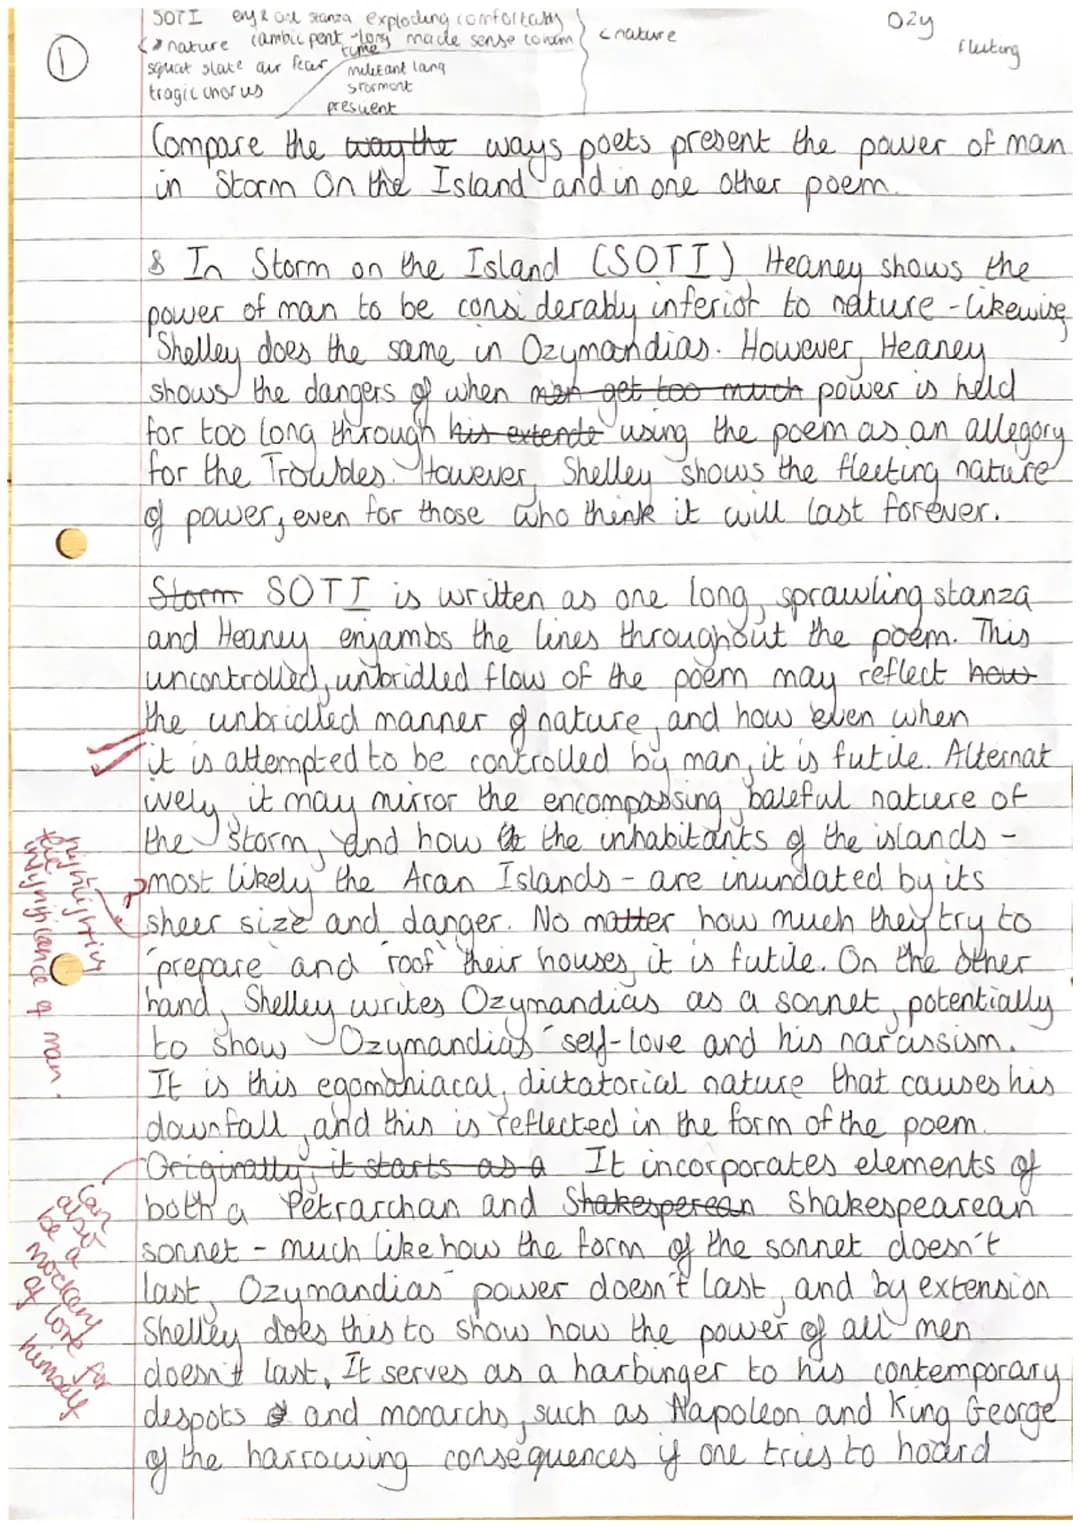 1
SOTI enj & one stanza exploding comfortably
nature iambic pent - long made sense to him
time
squat slate air fear
militant lang
tragic chorus
stormont
present
< nature
Ozy
fleeting
Compare the way the ways poets present the power of man
in Storm On the Island and in one other poem.
In Storm on the Island (SOTI) Heaney shows the
power of man to be considerably inferior to nature - likewise
Shelley does the same in Ozymandias. However, Heaney
shows the dangers of when man get too much power is held
for too long through his extende using the poem as an allegory
for the Troubles. However, Shelley shows the fleeting nature
of power, even for those who think it will last forever.
Storm SOTI is written as one long, sprawling stanza
and Heaney enjambs the lines throughout the poem. This
uncontrolled, unbridled flow of the poem may reflect how
the unbridled manner of nature, and how even when
it is attempted to be controlled by man, it is futile. Alternat
ively, it may mirror the encompassing, baleful nature of
the storm, and how the inhabitants of the islands -
most likely the Aran Islands - are inundated by its
sheer size and danger. No matter how much they try to
'prepare' and 'roof' their houses, it is futile. On the other
hand, Shelley writes Ozymandias as a sonnet, potentially
to show Ozymandias' self-love and his narcassism.
It is this egomaniacal, dictatorial nature that causes his
downfall, and this is reflected in the form of the poem.
Originally, it starts as a It incorporates elements of
both a Petrarchan and Shakesperean Shakespearean
sonnet - much like how the form of the sonnet doesn't
last, Ozymandias' power doesn't last, and by extension
Shelley does this to show how the power of all men
doesn't last. It serves as a harbinger to his contemporary
despots and monarchs, such as Napoleon and King George
of the harrowing consequences if one tries to hoard
highlighting
the
insignificance of man.
Can
also
be a
mockery
of love for
himself